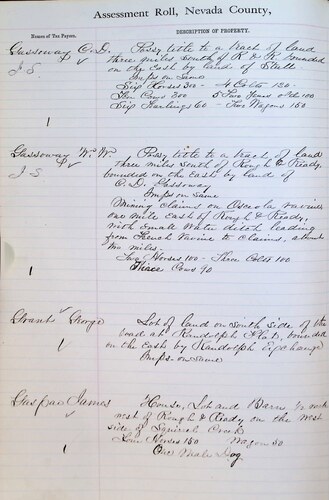 Assessment Roll, Nevada County,
Names of Tax Payers.
DESCRIPTION OF PROPERTY.
Gassoway C. D. Possy title to a tract of land
three miles South of R & R bounded
J. S. on the East by land of
Imps on Same
Six Horses 300 - 4 Colts 120 -
Cows 200 5 Two Years olds 100
Six Yearlings 60 - Two Wagons 150
1
Gassoway W. W. Possy title to a tract of land
three miles South of Rough & Ready,
J. S. bounded on the East by land of
C. D. Gassoway
Imps on Same
Mining Claims on Osceola Ravine
one mile East of Rough & Ready,
with Small Water ditch leading
from French Ravine to Claims, about
two miles.
Two Horses 100 - Three Colts 100
1 Three Cows 90
Grant George Lot of land on South Side of the
road at Randolph Flat, bounded
on the East by Randolph Exchange
1 Imps. on Same
Gaspar James House, Lot and Barn
west of Rough & Ready, on the West
side of Squirrel Creek
Four Horses 150 Wagon 50
1 One Male Dog